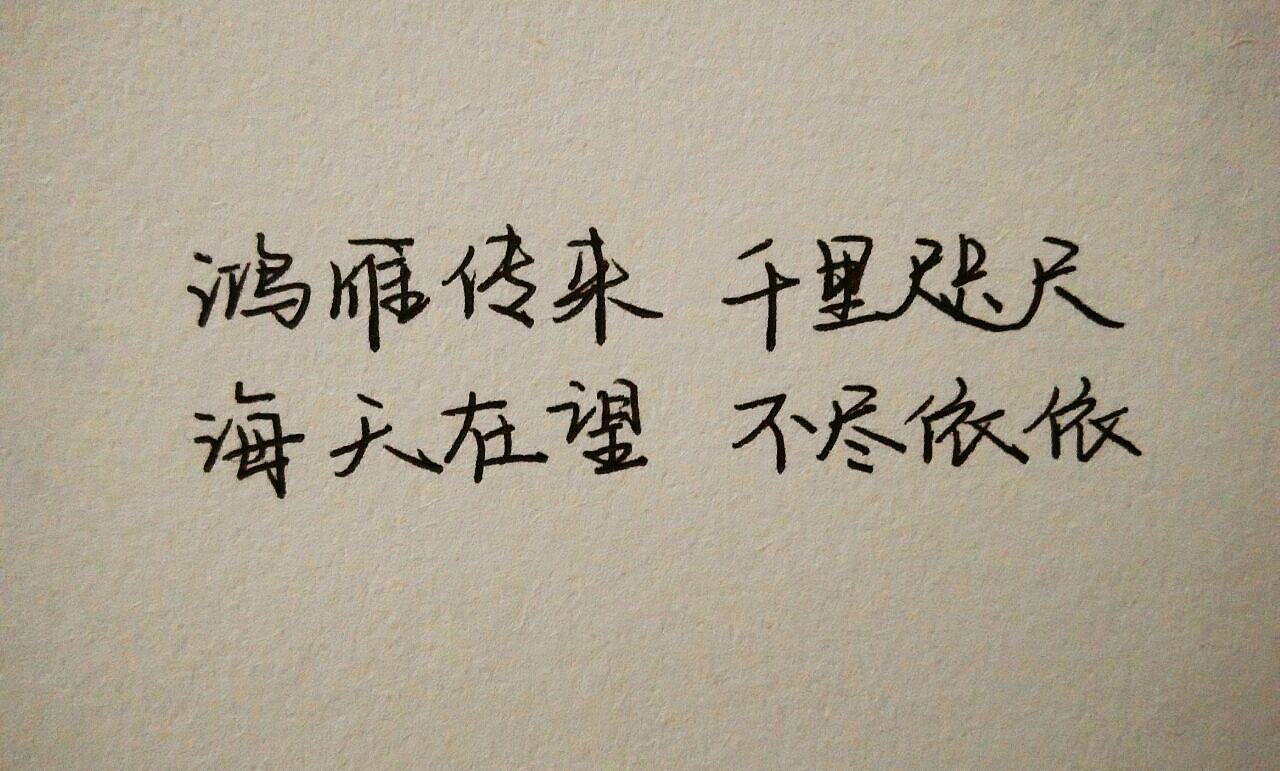 鸿雁传来 千里咫尺
海天在望 不尽依依